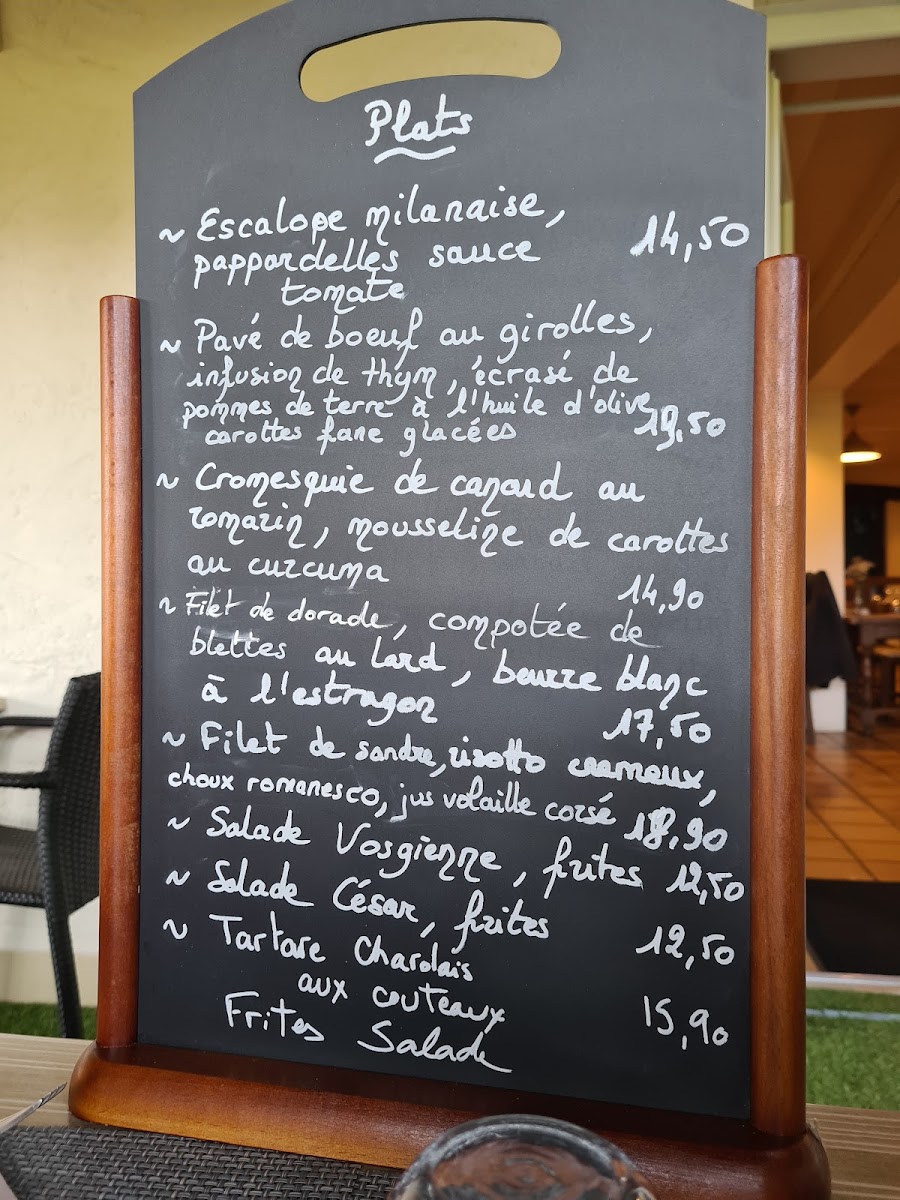 Plats
~ Escalope milanaise,
pappardelles sauce 14,50
tomate
~ Pavé de boeuf au girolles,
infusion de thym, écrasé de
pommes de terre à l'huile d'olive
carottes fane glacées 19,50
~ Cromesquie de canard au
romarin, mousseline de carottes
au curcuma 14,90
~ Filet de dorade, compotée de
blettes au lard, beurre blanc
à l'estragon 17,50
~ Filet de sandre, risotto cremeux,
choux romanesco, jus volaille corsé 18,90
~ Salade Vosgienne, frites 12,50
~ Salade César, frites 12,50
~ Tartare Charolais
aux couteaux 15,90
Frites Salade